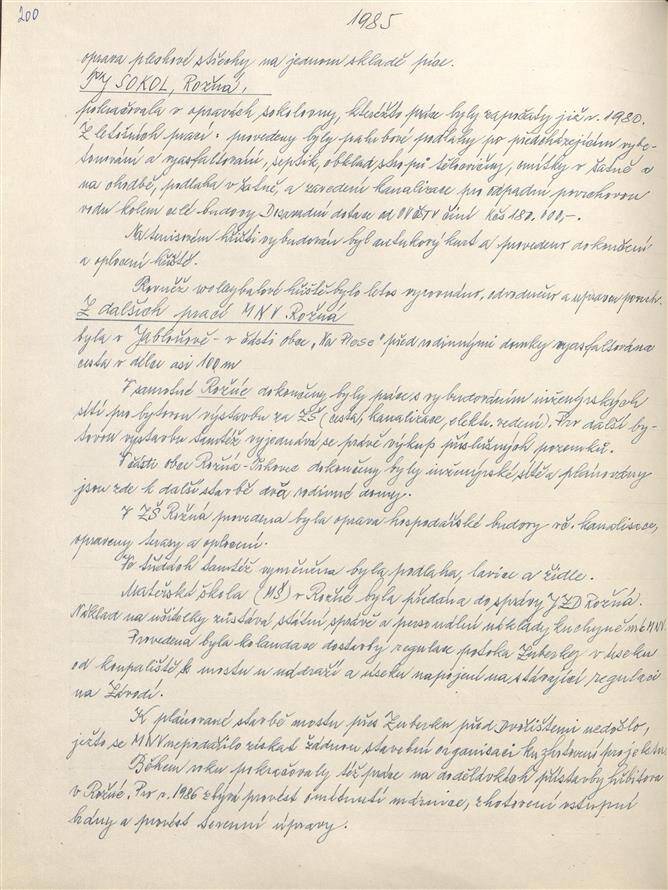 200
1985
oprava plechové střechy na jednom skladě píce.
TJ SOKOL, Rožná,
pokračovala v opravách sokolovny, kteréžto práce byly započaty již v r. 1980.
Z letošních prací: provedeny byly palubové podlahy po předcházejícím vybe-
tonování a vyasfaltování, septik, obklad stropu tělocvičny, omítky v šatně a
na chodbě, podlaha v šatně, a zavedení kanalizace pro odpadní povrchovou
vodu kolem celé budovy. Dosavadní dotace od OV ČSTV činí Kčs 180.000,-.
Na tenisovém hřišti vybudován byl antukový kurt a provedeno dokončení
a oplocení hřiště.
Rovněž volleybalové hřiště bylo letos vyrovnáno, odvodněno a upraven povrch.
Z dalších prací MNV Rožná
byla v Jabloňově - v části obce „Na Plose“ před rodinnými domky vyasfaltována
cesta v délce asi 100 m
V samotné Rožné dokončeny byly práce s vybudováním inženýrských
sítí pro bytovou výstavbu za ZŠ (cesta, kanalizace, elektr. vedení). Pro další by-
tovou výstavbu tamtéž vyjednává se právě výkup příslušných pozemků.
V části obce Rožná - dokončeny byly inženýrské sítě a plánovány
jsou zde k další stavbě dva rodinné domy.
V ZŠ Rožná provedena byla oprava hospodářské budovy vč. kanalisace,
opraveny terasy a oplocení.
Ve třídách tamtéž vyměněna byla podlaha, lavice a židle.
Mateřská škola (MŠ) v Rožné byla předána do správy JZD Rožná.
Náklad na učitelky zůstává státní správě a personální náklady kuchyně má MNV.
Provedena byla kolaudace dostavby regulace potoka Zuberky v úseku
od koupaliště k mostu u nádraží a úseku napojení na stávající regulaci
na Závodí.
K plánované stavbě mostu přes Zuberku před Dvořištěm nedošlo,
ježto se MNV nepodařilo získat žádnou stavební organisaci ku zhotovení projektu.
Během roku pokračovaly též práce na dodělávkách přístavby hřbitova
v Rožné. Pro r. 1986 zbývá provést omítnutí márnice, zhotovení vstupní
brány a provést terenní úpravy.